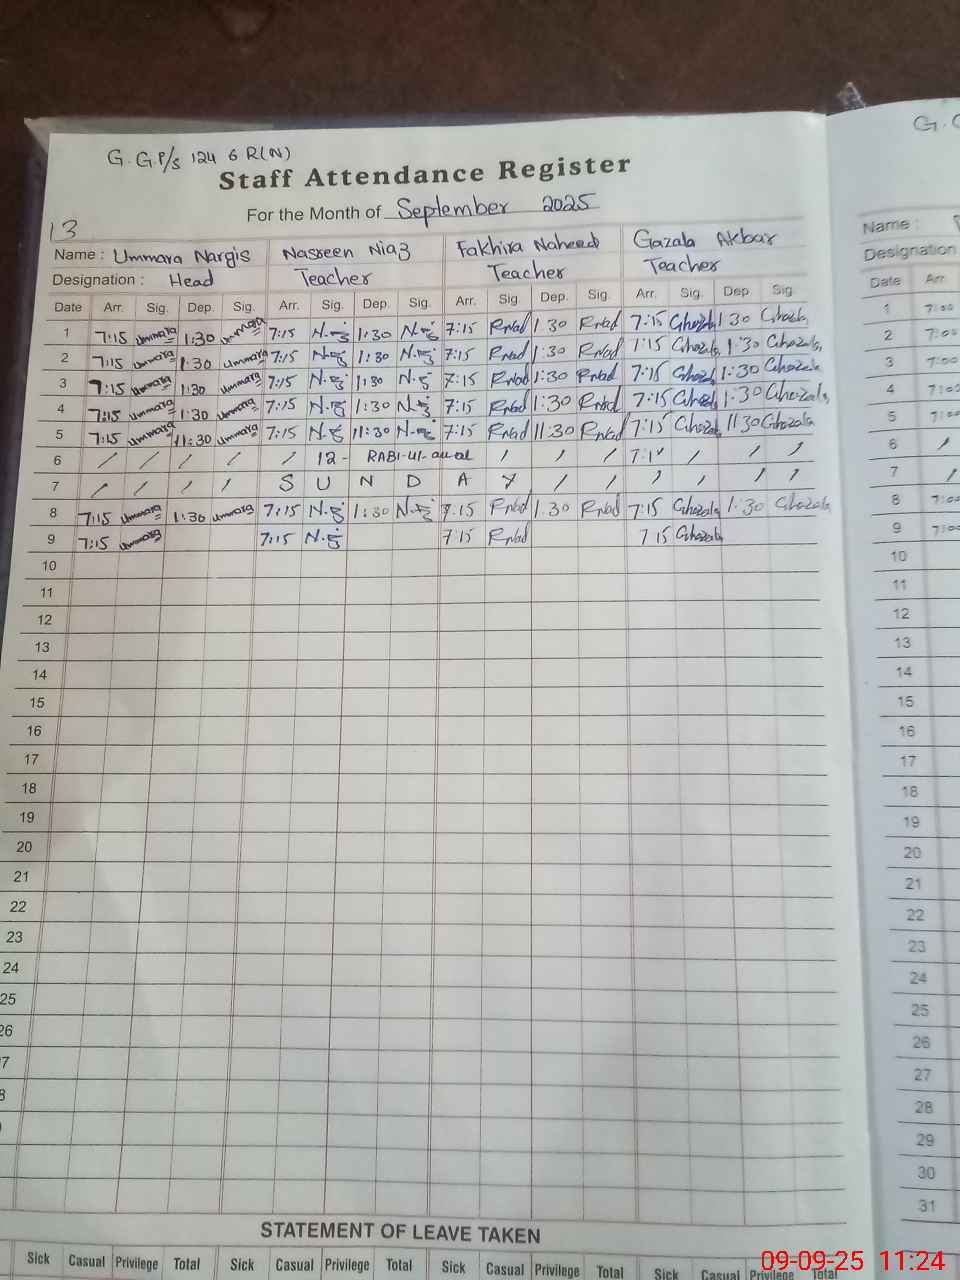 G.G.P/S 124 6 R(N)
Staff Attendance Register
For the Month of September 2025
13
Name : Ummara Nargis Nasreen Niaz Fakhira Naheed Gazala Akbar
Designation : Head Teacher Teacher Teacher
Date Arr. Sig. Dep. Sig. Arr. Sig. Dep. Sig. Arr. Sig. Dep. Sig. Arr. Sig. Dep Sig.
1 7:15 Ummara 1:30 Ummara 7:15 1:30 7:15 Rnad 1:30 Rnad 7:15 Ghazala 1:30 Ghazala
2 7:15 Ummara 1:30 Ummara 7:15 1:30 7:15 Rnad 1:30 Rnad 7:15 Ghazala 1:30 Ghazala
3 7:15 Ummara 1:30 Ummara 7:15 1:30 7:15 Rnad 1:30 Rnad 7:15 Ghazala 1:30 Ghazala
4 7:15 Ummara 1:30 Ummara 7:15 1:30 7:15 Rnad 1:30 Rnad 7:15 Ghazala 1:30 Ghazala
5 7:15 Ummara 11:30 Ummara 7:15 11:30 7:15 Rnad 11:30 Rnad 7:15 Ghazala 11:30 Ghazala
6 / / / / / 12 - RABI-Ul-awal / / / 7:1 / / /
7 / / / / S U N D A Y / / / / / /
8 7:15 Ummara 1:30 Ummara 7:15 1:30 7:15 Rnad 1:30 Rnad 7:15 Ghazala 1:30 Ghazala
9 7:15 Ummara 7:15 7:15 Rnad 7 15 Ghazala
10
11
12
13
14
15
16
17
18
19
20
21
22
23
24
25
26
STATEMENT OF LEAVE TAKEN
Sick Casual Privilege Total Sick Casual Privilege Total Sick Casual Privilege Total Sick Casual Privilege Total
Name :
Designation
Date Arr.
1 7:00
2 7:00
3 7:00
4 7:00
5 7:00
6 /
7 /
8 7:00
9 7:00
10
11
12
13
14
15
16
17
18
19
20
21
22
23
24
25
26
27
28
29
30
31
09-09-25 11:24